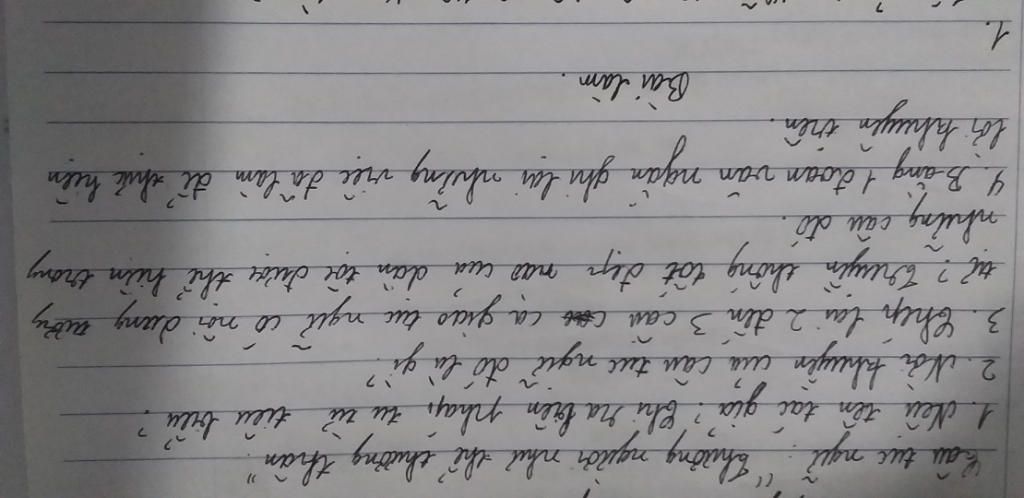 Câu tục ngữ: "Thương người như thể thương thân".
1. Nêu tên tác giả? Chỉ ra biện pháp tu từ tiêu biểu?
2. Lời khuyên của câu tục ngữ đó là gì?
3. Chép lại 2 đến 3 câu ca giao tục ngữ có nội dung tương
tự? Truyền thống tốt đẹp nào của dân tộc được thể hiện trong
những câu đó.
4. Bằng 1 đoạn văn ngắn ghi lại những việc đã làm để thực hiện
lời khuyên trên.
Bài làm.
1.